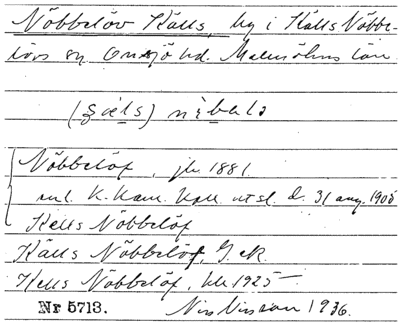 Nöbbelöv Källs, by i Källs Nöbbe-
lövs sn Onsjö hd. Malmöhus län.
(ʂɛls) nɩbələ
Nöbbelöf, jb 1881.
enl. K. Kam. Koll. utsl. d. 31 aug. 1900
Kells Nöbbelöf
Källs Nöbbelöf, Gek
Kells Nöbbelöf, kb 1925
Nr 5713. Nils Nilsson 1936.